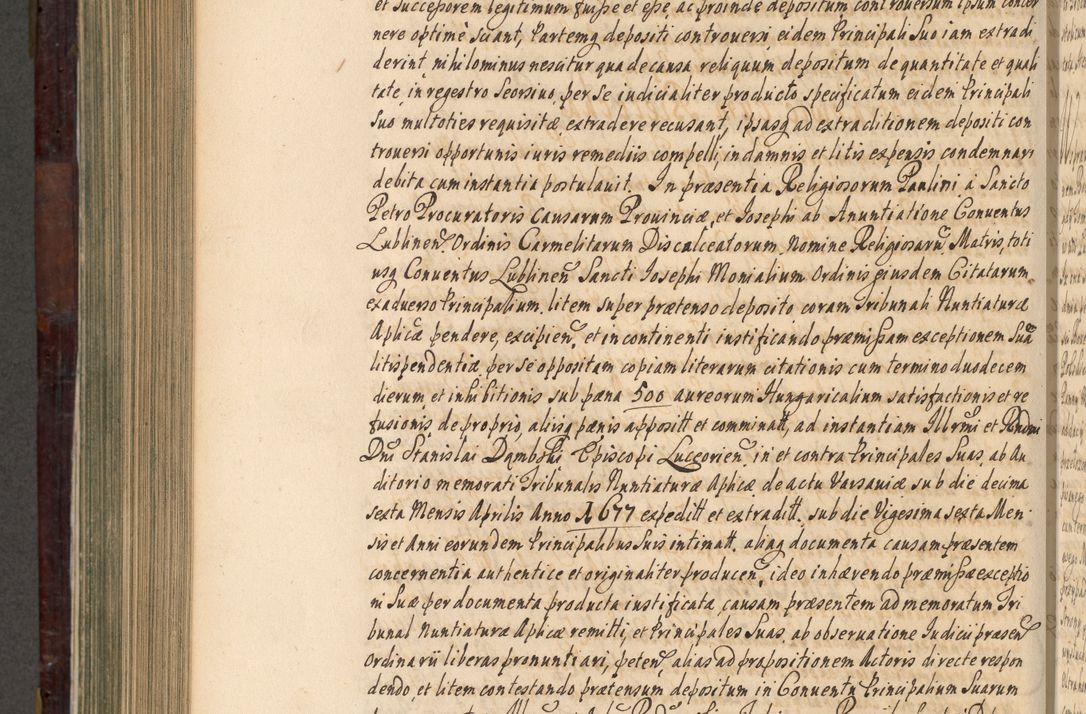 et Successorem legitimum fuisse et esse, ac proinde depositum controversum ipsum concer
nere optimè sciant, Partemq depositi controversi eidem Principali Suo iam extradi
derint, nihilominus nescitur qua de causa reliquum depositum de quantitate et quali
tate, in regestro Seorsivo, per se iudicialiter producto specificatum eidem Principali
Suo multoties requisitæ, extradere recusant, ipsasq ad extraditionem depositi con
troversi opportunis iuris remediis compelli, in damnis et litis expensis condemnari
debita cum instantia postulavit. In præsentia Religiosorum Paulini à Sancto
Petro Procuratoris causarum Provinciæ, et Josephi ab Anuntiatione Conventus
Lublinen Ordinis Carmelitarum Discalceatorum Nomine Religiosarū Matris, toti
usq Conventus Lublinen Sancti Josephi Monialium Ordinis eiusdem Citatarum
ex adverso Principalium, litem super prætenso deposito coram Tribunali Nuntiaturæ
Aplicæ pendere, excipien, et in continenti iustificando præmissam exceptionem Suā
litispendentiæ per Se oppositam copiam literarum citationis cum termino duodecem
dierum et inhibitionis sub pæna 500 aureorum Hungaricalium satisfactionis et re
fusionis de proprio, aliisq pænis appositt et comminatt, ad instantiam Illrmi et Rndmi
Dni Stanislai Dąmbski Episcopi Luceorien, in et contra Principales Suas, ab Au
ditorio memorati Tribunalis Nuntiaturæ Aplicæ de actu Varsaviæ sub die decima
sexta Mensis Aprilis Anno 1677 expeditt et extraditt, sub die Vigesima sexta Men
sis et Anni eorundem Principalibus Suis intimatt, aliaq documenta causam præsentem
concernentia authentice et originaliter producen, ideo inhærendo præmissæ exceptio
ni Suæ per documenta producta iustificatæ, causam præsentem ad memoratum Tri
bunal Nuntiaturæ Aplicæ remitti, et Principales Suas, ab observatione Iudicii præsen
Ordinarii liberas pronuntiari, peten, alias ad propositionem Actoris directe respon
dendo, et litem contestando prætensum depositum in Conventu Principalium Suarum